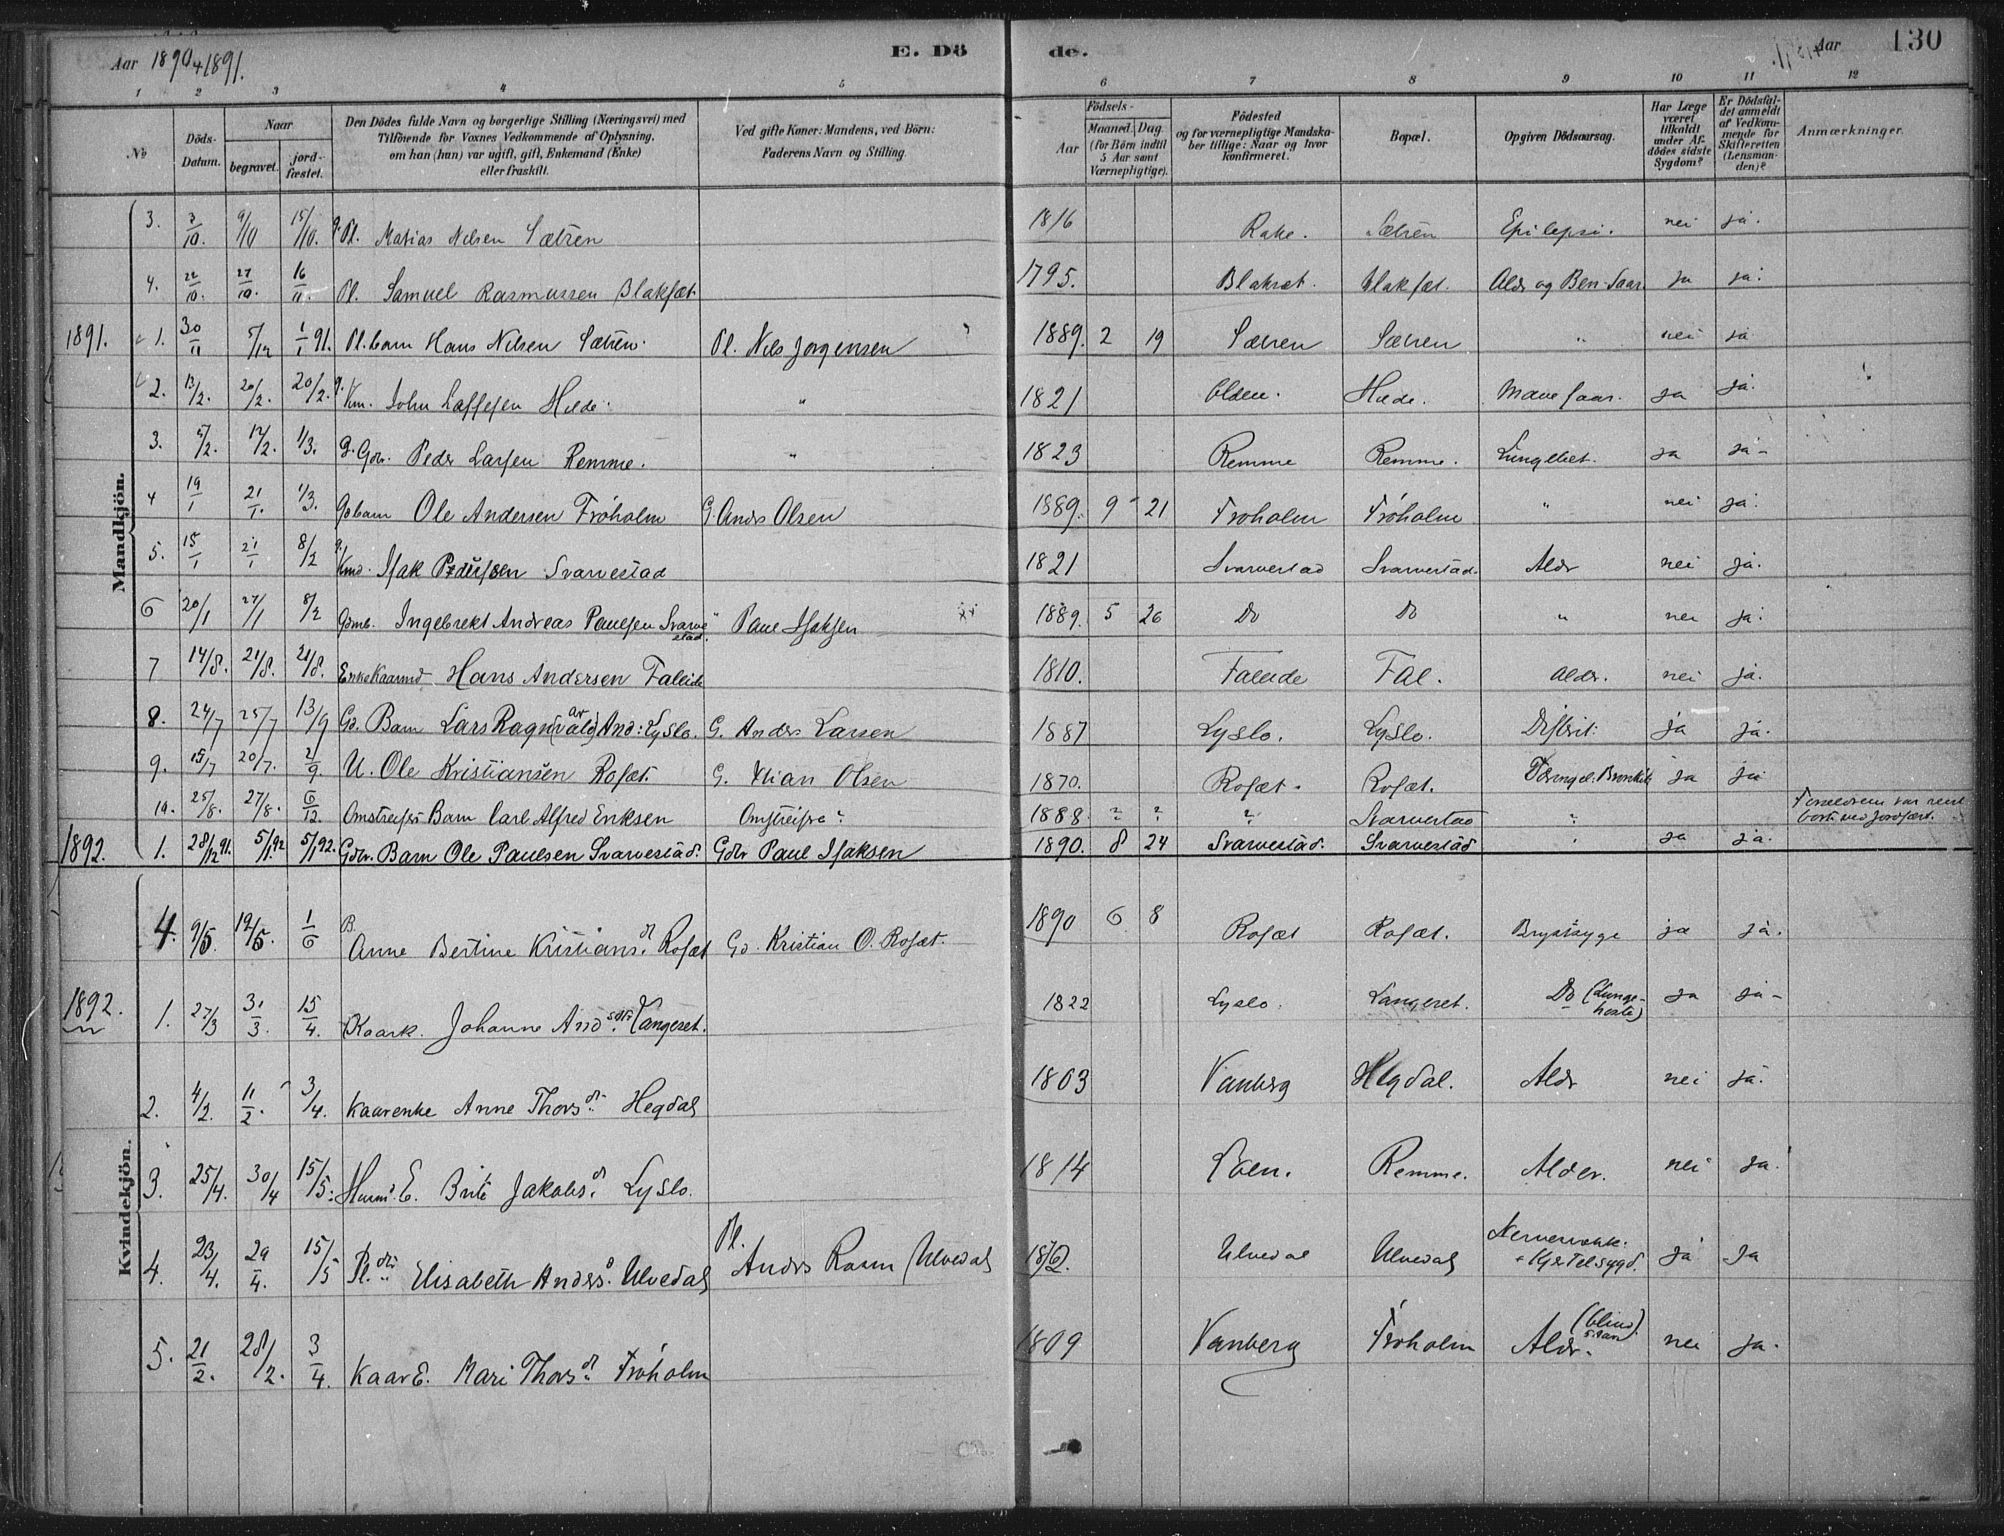 Aar 1890 + 1891.
E. Dö
de.
Aar
130
1 2 3 4 5 6 7 8 9 10 11 12
No
Döds-Datum.
Naar
begravet.
jord-fæstet.
Den Dödes fulde Navn og borgerlige Stilling (Næringsvei) med
Tilföiende for Voxnes Vedkommende af Oplysning,
om han (hun) var ugift, gift, Enkemand (Enke)
eller fraskilt.
Ved gifte Koner: Mandens, ved Börn:
Faderens Navn og Stilling.
Födsels-
Aar
Maaned. Dag
(for Börn indtil
5 Aar samt
Værnepligtige).
Födested
og for værnepligtige Mandska-
ber tillige: Naar og hvor
konfirmeret.
Bopæl.
Opgiven Dödsaarsag.
Har Læge
været
tilkaldt
under Af-
dödes sidste
Sygdom?
Er Dödsfal-
det anmeldt
af Vedkom-
mende for
Skifteretten
(Lensman-
den)?
Anmærkninger.
Mandkjön.
3. 3/10. 9/10 15/10. Pl. Matias Nilsen Sætren 1816 Rake. Sætren Epilepsi. nei ja.
4. 22/10. 27/10. 16/11. Pl. Samuel Rasmussen Blaksæt. 1795. Blaksæt. Blaksæt. Aldr og Ben-Saar ja ja.
1891. 1. 30/11 5/12 1/1 91. Pl. barn Hans Nilsen Sætren. Pl. Nils Jorgensen 1889. 2 19 Sætren Sætren " nei ja
2. 13/2. 20/2. 20/2. g. Km. John Lassesen Hilde. " 1821 Olden. Hilde. Mavesaar. ja ja.
3. 5/2. 12/2. 1/3. G. Gbr. Peder Larsen Remme. " 1823 Remme Remme. Lungebet. ja ja-
4 19/1 21/1. 1/3. Gbarn Ole Andersen Fróholm G. Anders Olsen 1889. 9 21 Froholm Fróholm " nei ja.
5. 15/1 21/1 8/2 g. Kmd. Isak Pedersen Svarvestad 1821 Svarvestad Svarvestad. Aldr nei ja.
6 20/1 27/1 8/2 Gdmb. Ingebrekt Andreas Paulsen Svarve
stad. " Paul Isaksen 1889. 5 26 Do Do " nei ja.
7 14/8. 21/8. 21/8. Enkekaarmd Hans Andersen Faleide 1810. Faleide Fal. Alder. nei ja.
8. 24/7 25/7 13/9 Gd. Barn Lars Ragn(ar)(vald) And: Lyslo. G. Anders Larsen 1887 Lyslo. Lyslo. Difterit: ja ja.
9. 15/7 20/7. 2/9. U. Ole Kristiansen Rosæt. G. Xtian Olsen 1870. Rosæt. Rosæt. ja ja
10. 25/8. 27/8. 6/12. Omstreifers Barn Carl Alfred Eriksen Omstreifere " 1888 " " " Svarvestad " Forældrene var reist
bort ved Jordfæst.
1892. 1. 28/12 91. 5/1 92 5/1 92. Gdbr. Barn Ole Paulsen Svarvestad. Gdbr Paul Isaksen 1890. 8 24 Svarvestad. Svarvestad " ja ja.
Kvindekjön.
4. 9/5 12/5. 1/6 B. Anne Bertine Kristians.d Rosæt Gd. Kristian O. Rosæt. 1890 6 8 Rosæt Rosæt. Brystsyge ja ja.
1892. 1. 27/3 31/3. 15/4. Kaark. Johanne Andsdtr. Langeset. 1822 Lyslo. Langeset. Do (Lunge-
hoste) ja ja-
2. 4/2. 11/2. 3/4. Kaarenke Anne Thors.d Hegdal 1803 Vanberg Hegdal. Aldr nei ja.
3. 25/4. 30/4 15/5. Husmd. E. Brite Jakobs.d Lyslo. 1814 Loen. Remme. Alder. nei ja.
4. 23/4. 29/4. 15/5 Pl. dtr. Elisabeth Anders.d Ulvedal Pl. Anders Rasm Ulvedal Ulvedal Ulvedal Nervesvækk.
+ Kjertelsygd. ja ja
5. 21/2. 28/2. 3/4. Kaar E. Mari Thors.d Fróholm 1809 Vanberg Fróholm Aldr. (blind) nei ja.